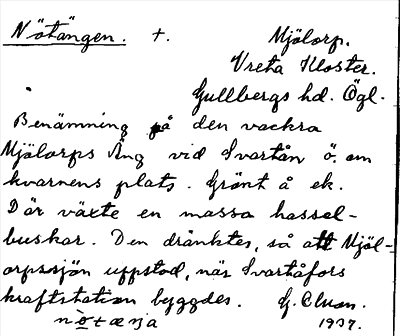 Nötängen. +. Mjölorp.
Vreta Kloster.
Gullbergs hd. Ögl.
Benämning på den vackra
Mjölorps Äng vid Svartån ö. om
kvarnens plats. Grönt å ek.
Där växte en massa hassel-
buskar. Den dränktes, så att Mjöl-
orpssjön uppstod, när Svartåfors
kraftstation byggdes. G. Cluson.
nötænja 1937.